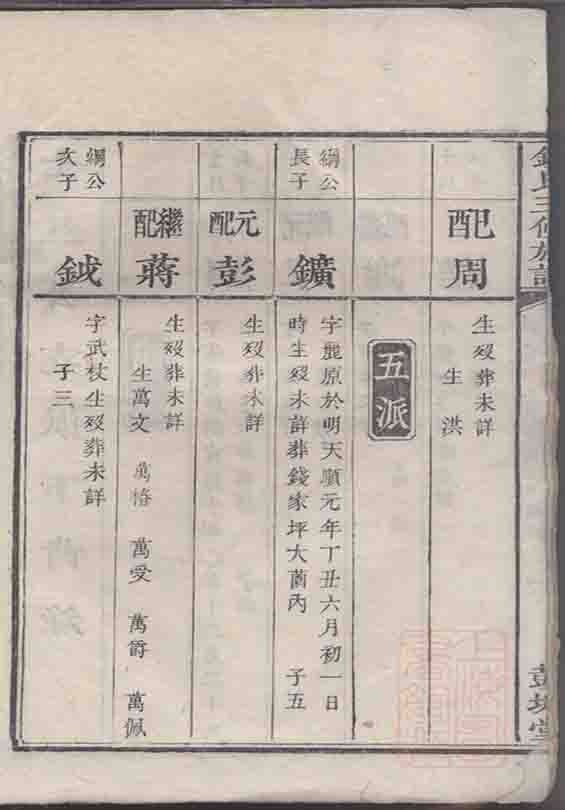 錢氏三修族譜
彭城堂
配周
生歿葬未詳
生 洪
五派
綱公
長子
鑛
字麗原於明天順元年丁丑六月初一日
時生歿未詳葬錢家坪大茵內 子五
元配彭
生歿葬未詳
繼配蔣
生歿葬未詳
生萬文 萬椿 萬受 萬爵 萬佩
綱公
次子
鉞
字武杖生歿葬未詳
子三